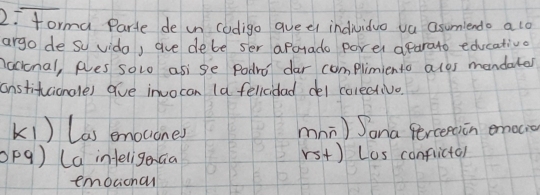 2. Forma Parte de un codigo que el individuo va asumiendo a lo
argo de su vida, que debe ser aportado por el aparato educativo
nacional, pues solo asi se Podrá dar complimiento a los mandatos
constitucionales que invocan la felicidad del colectivo.
Kl) Las emociones mnñ) Sana Percepción emocio
opq) La inteligencia rst) Los conflictos
emocional